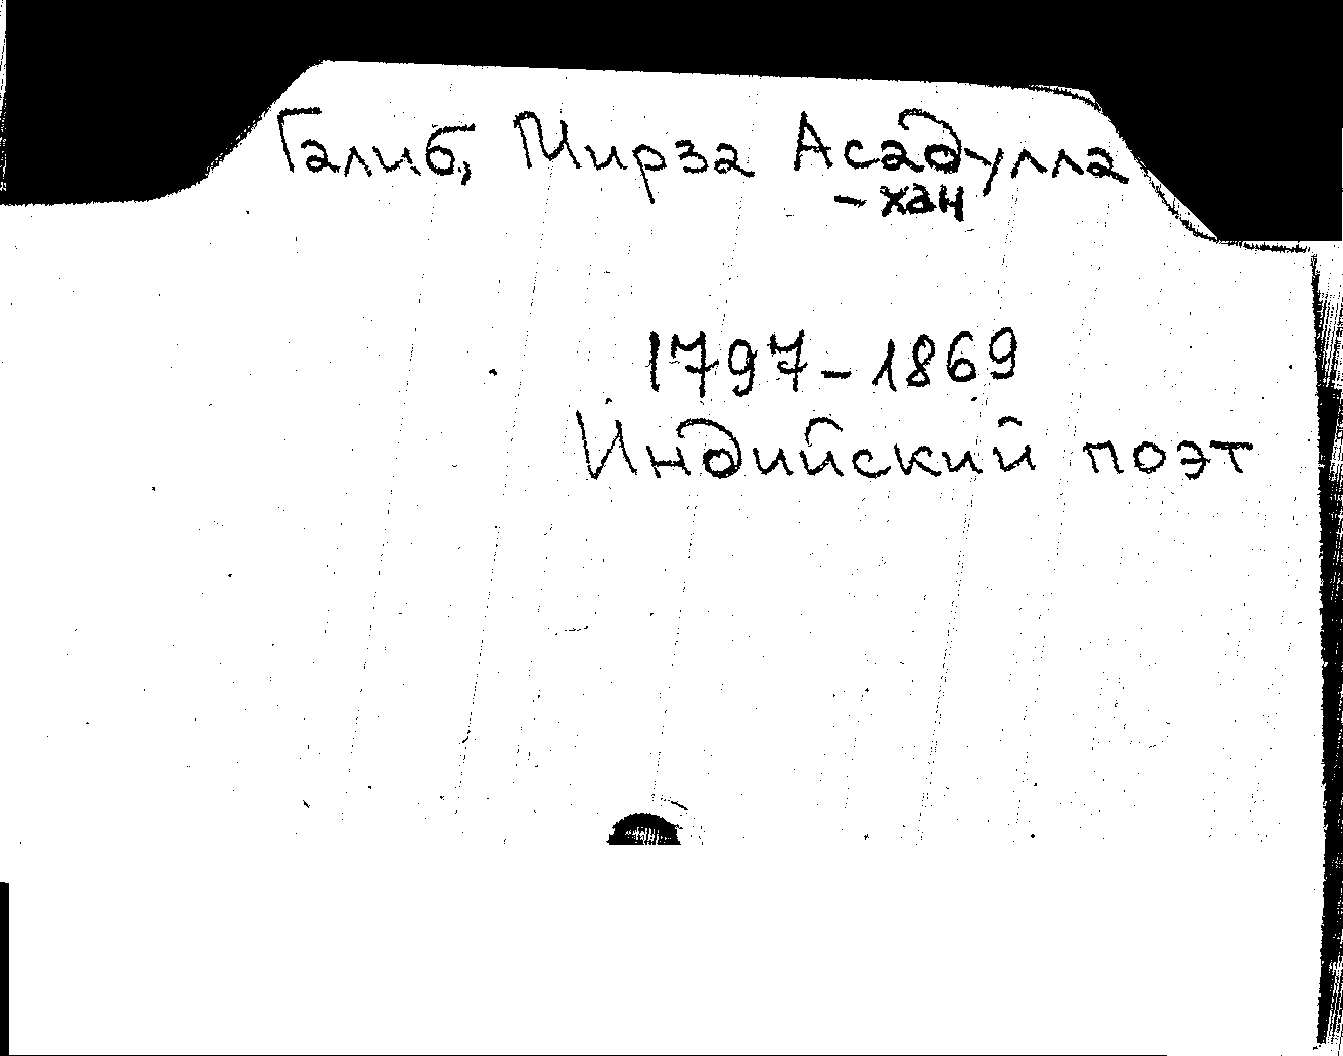 Галиб, Мирза Асадулла
- хан
1797-1869
Индийский поэт